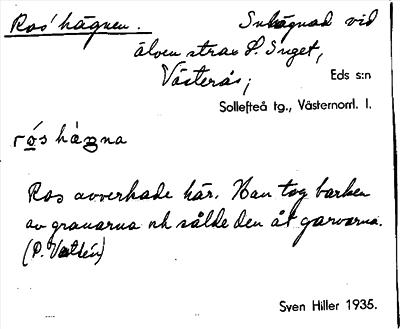 Ros'hägnen. Inhägnad vid
älven strax S. Inget,
Västerås; Eds s:n
Sollefteå tg., Västernorrl. l.
rós hàgna
Ros avverkade här. Han tog barken
av granarna och sålde den åt garvarna.
(P. Vestén)
Sven Hiller 1935.